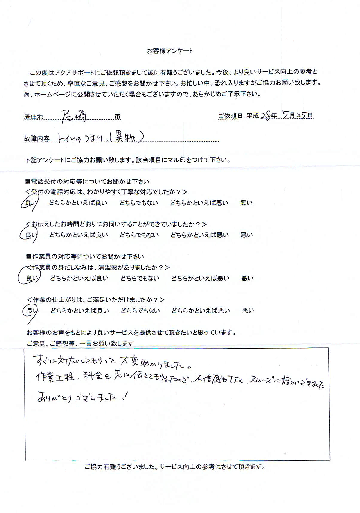 お客様アンケート
この度はアクアサポートにご依頼頂きまして誠に有難うございました。今後、より良いサービス向上の参考と
させて頂くため、率直なご意見、ご感想をお聞かせ下さい。お忙しい中、恐れ入りますがご協力お願い致します。
尚、ホームページに公開させていただく場合もございますので、あらかじめご了承下さい。
市 ご依頼日 平成 28年 5月25日
故障内容 トイレのつまり(異物)
下記アンケートにご協力お願い致します。該当項目にマル印をつけて下さい。
■電話受付の対応等についてお聞かせ下さい
<受付の電話対応は、わかりやすく丁寧な対応でしたか?>
良い どちらかといえば良い どちらでもない どちらかといえば悪い 悪い
<お伝えしたお時間どおりにお伺いすることができていましたか?>
良い どちらかといえば良い どちらでもない どちらかといえば悪い 悪い
■作業員の対応等についてお聞かせ下さい
<作業員の身だしなみは、清潔感がありましたか?>
良い どちらかといえば良い どちらでもない どちらかといえば悪い 悪い
<作業の仕上がりは、ご満足いただけましたか?>
良い どちらかといえば良い どちらでもない どちらかといえば悪い 悪い
お客様のお声をもとにより良いサービスを提供させて頂きたいと思っています。
ご意見、ご感想等、一言お願い致します
すぐに対応してもらって大変助かりました。
作業工程、料金も先に
ありがとうございました!
ご協力有難うございました。サービス向上の参考にさせて頂きます。